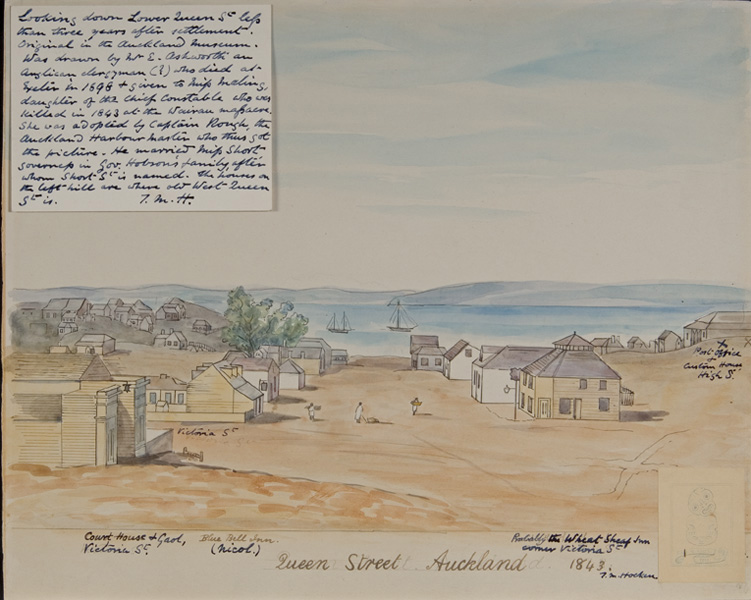 Looking down Lower Queen St less
than three years after settlement.
Original in the Auckland Museum.
Was drawn by Mr E. Ashworth an
Anglican clergyman (?) who died at
Exeter in 1898 & given to Miss Maling,
daughter of the Chief Constable who was
killed in 1843 at the Wairau massacre.
She was adopted by Captain Rough, the
Auckland Harbour master who thus got
the picture. He married Miss Short
governess in Gov. Hobson's family after
whom Short St is named. The houses on
the left hill are where old West Queen
St is. T. M. H.
to
Post Office
&
Custom House
High St.
Victoria St
Court House & Gaol,
Victoria St.
Blue Bell Inn.
(Nicol.)
Probably the Wheat Sheaf Inn
corner Victoria St
Queen Street Auckland 1843.
T. M. Hocken